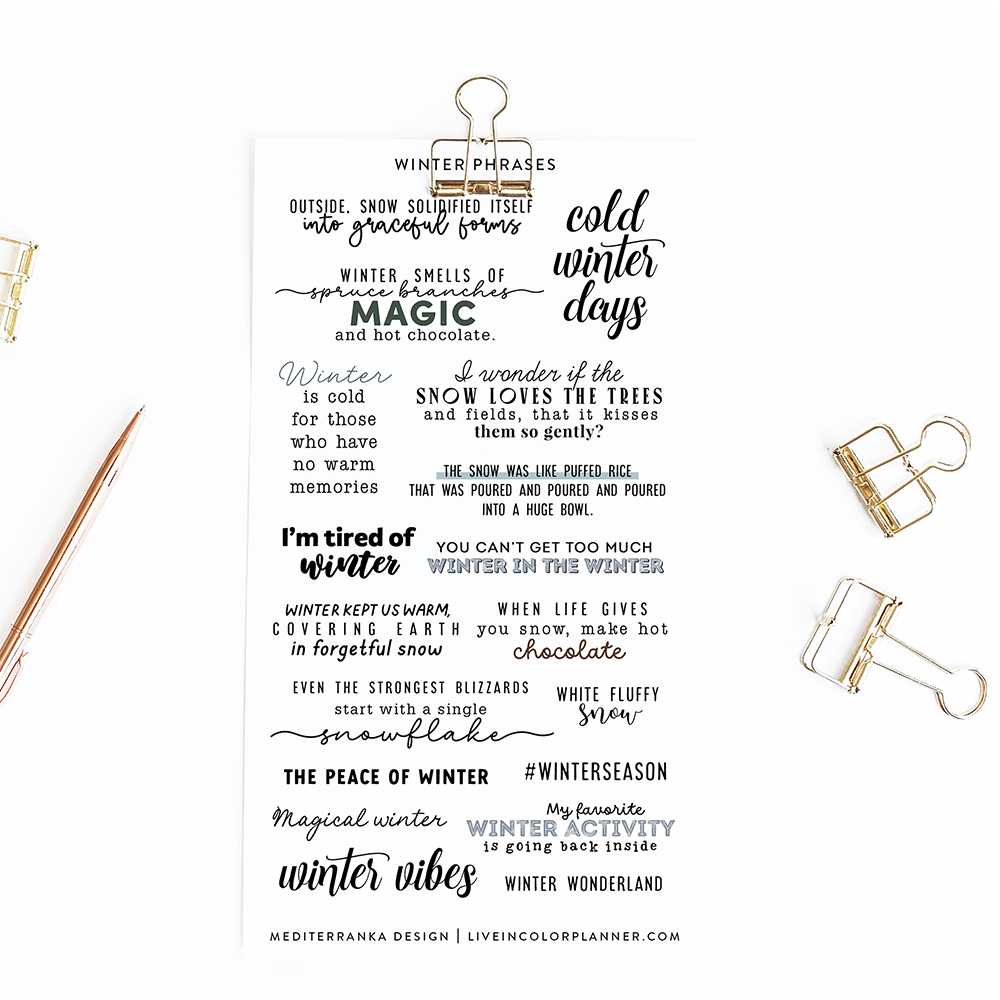 WINTER PHRASES
OUTSIDE, SNOW SOLIDIFIED ITSELF
into graceful forms
cold
winter
days
WINTER SMELLS OF
spruce branches
MAGIC
and hot chocolate.
Winter
is cold
for those
who have
no warm
memories
I wonder if the
SNOW LOVES THE TREES
and fields, that it kisses
them so gently?
THE SNOW WAS LIKE PUFFED RICE
THAT WAS POURED AND POURED AND POURED
INTO A HUGE BOWL.
I'm tired of
winter
YOU CAN'T GET TOO MUCH
WINTER IN THE WINTER
WINTER KEPT US WARM,
COVERING EARTH
in forgetful snow
WHEN LIFE GIVES
you snow, make hot
chocolate
EVEN THE STRONGEST BLIZZARDS
start with a single
snowflake
WHITE FLUFFY
snow
THE PEACE OF WINTER
#WINTERSEASON
Magical winter
My favorite
WINTER ACTIVITY
is going back inside
winter vibes
WINTER WONDERLAND
MEDITERRANKA DESIGN | LIVEINCOLORPLANNER.COM